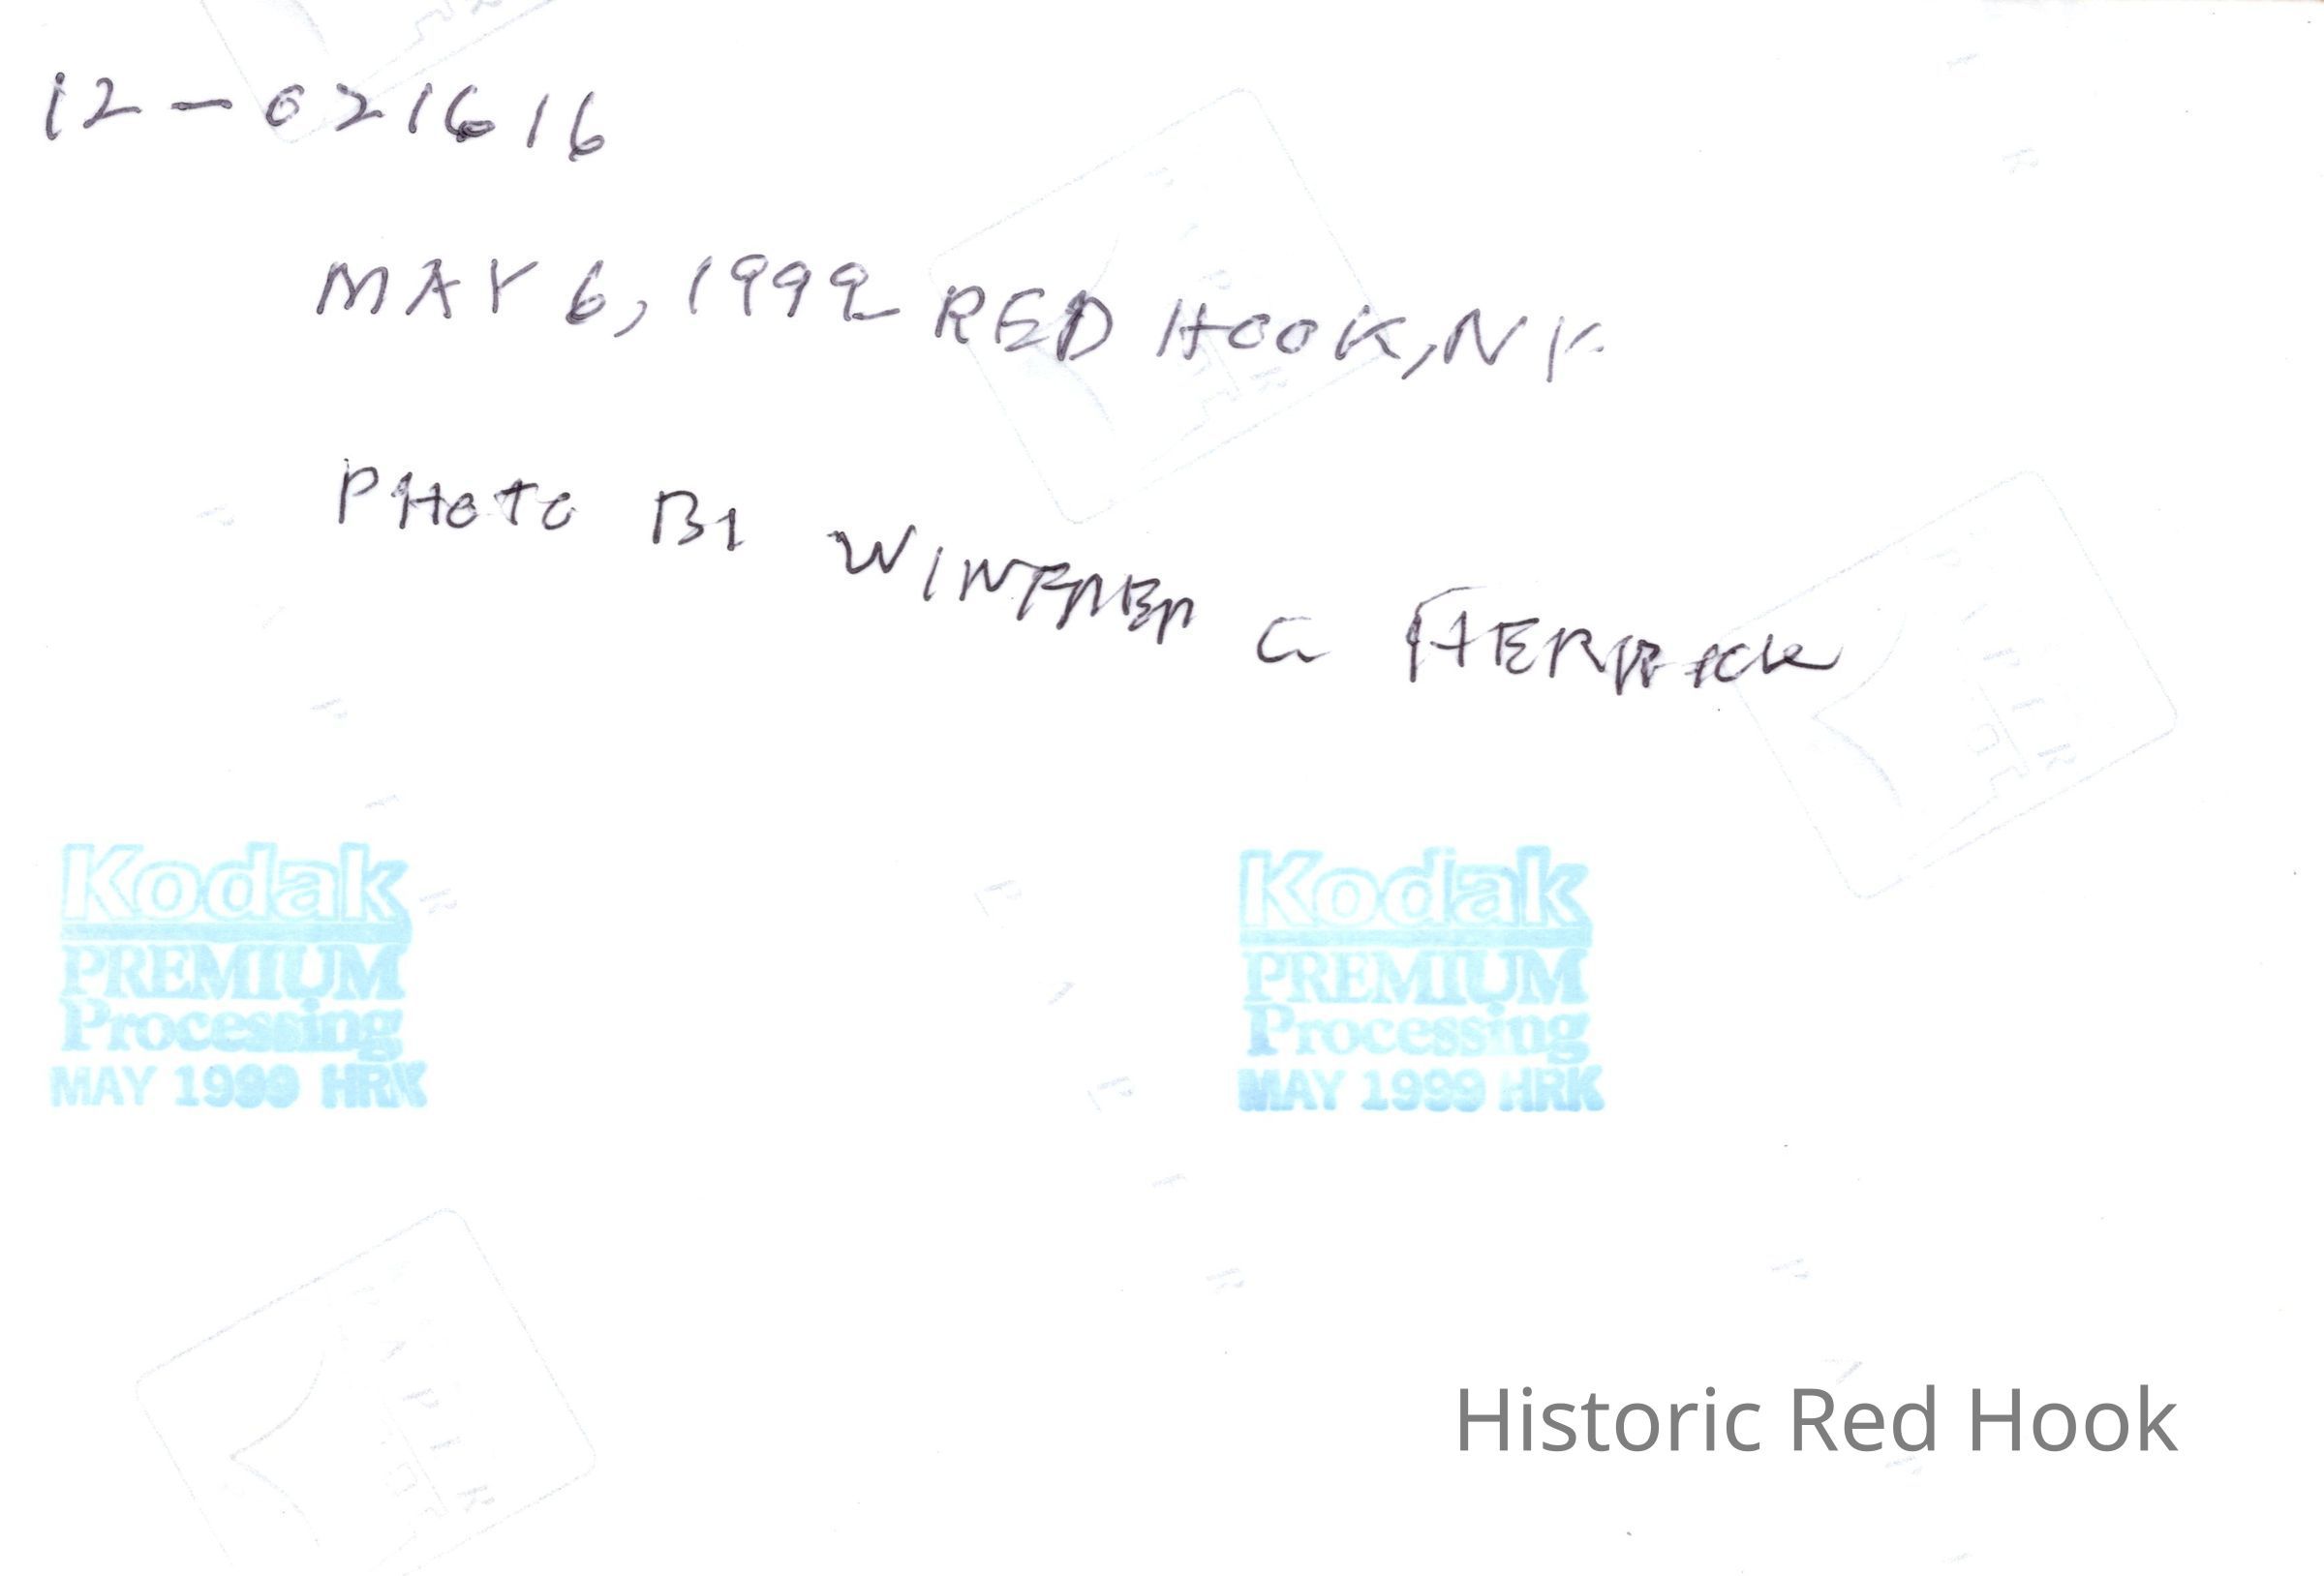 12-021616
MAY 6, 1999 RED HOOK, NY.
PHOTO BY WINTHROP C HERRICK
Kodak
PREMIUM
Processing
MAY 1999 HRK
Kodak
PREMIUM
Processing
MAY 1999 HRK
Historic Red Hook